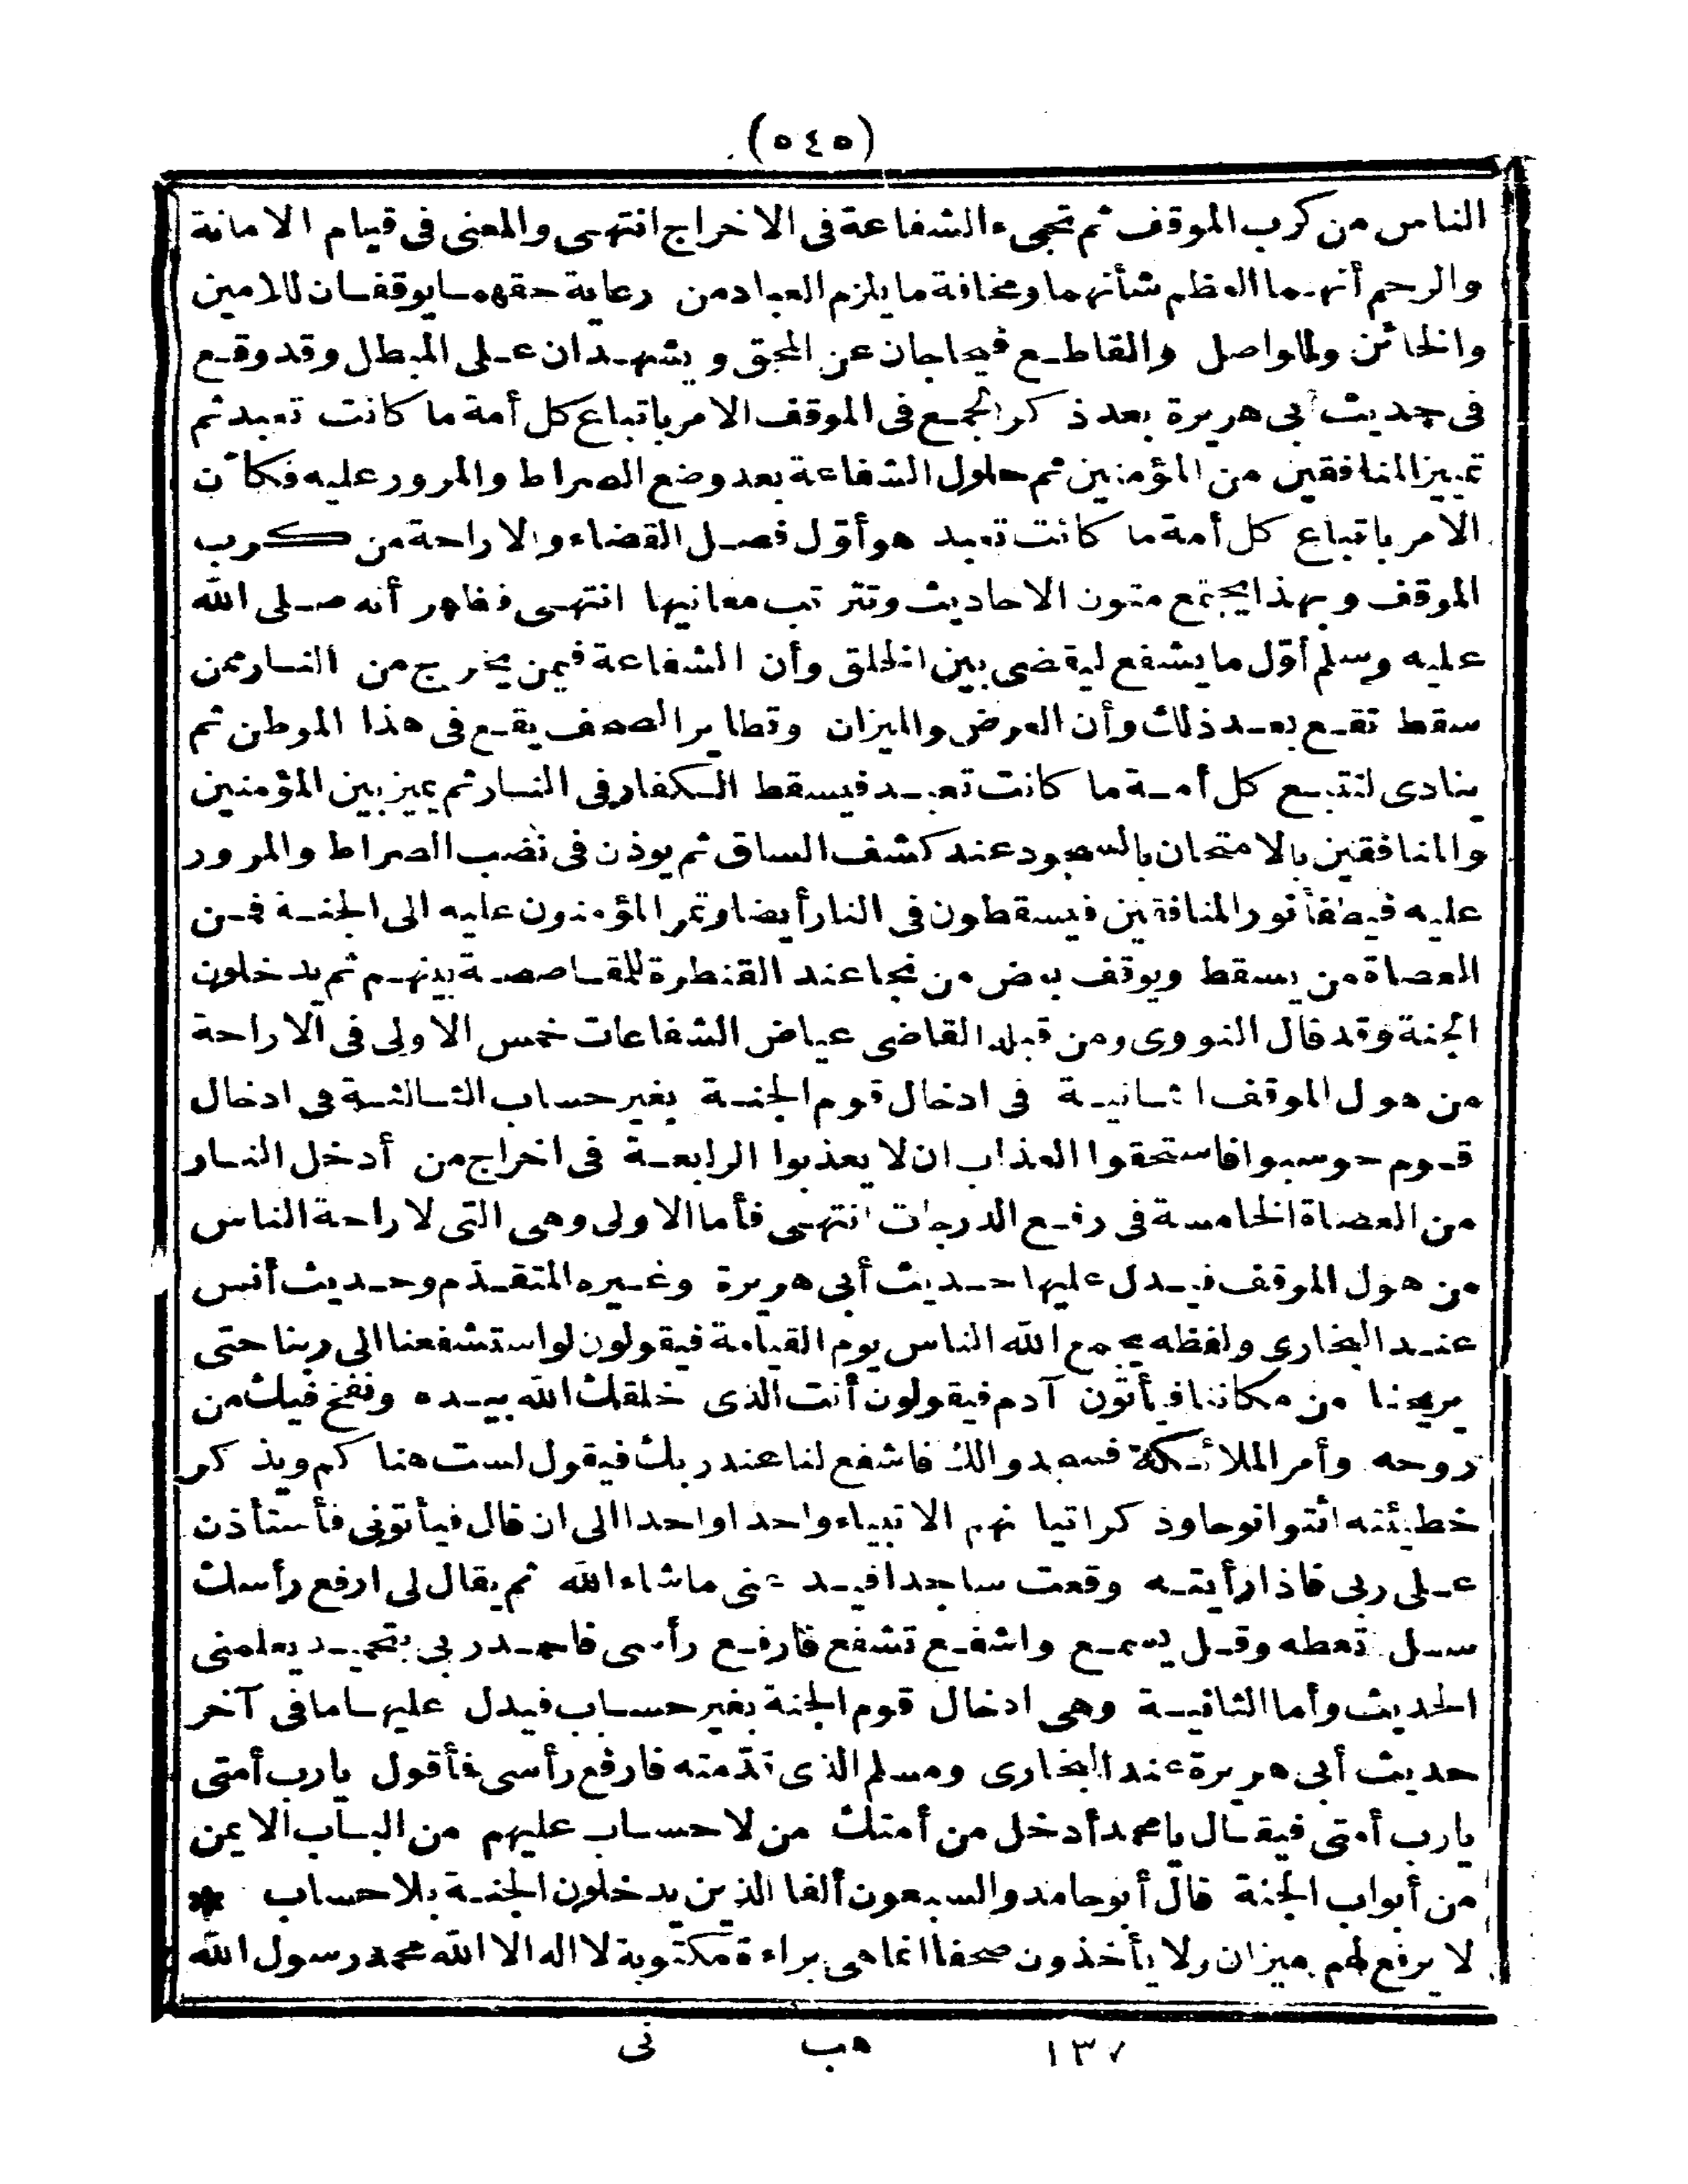 (٥٤٥)
الناس من كرب الموقف ثم تجىء الشفاعة فى الاخراج انتهى والمعنى فى قيام الامانة
والرحم أنهما لعظم شأنهما ومخافة ما يلزم العباد من رعاية حقهما يوقفان للامين
والخائن وللواصل والقاطع فيحاجان عن المحق ويشهدان على المبطل وقد وقع
فى حديث أبى هريرة بعد ذكر الجمع فى الموقف الامر باتباع كل أمة ما كانت تعبد ثم
تمييز المنافقين من المؤمنين ثم حلول الشفاعة بعد وضع الصراط والمرور عليه فكأن
الامر باتباع كل أمة ما كانت تعبد هو أوّل فصل القضاء والاراحة من كرب
الموقف وبهذا يجتمع متون الاحاديث وتترتب معانيها انتهى فظهر أنه صلى الله
عليه وسلم أوّل ما يشفع ليقضى بين الخلق وأن الشفاعة فيمن يخرج من النار ممن
سقط تقع بعد ذلك وأن العرض والميزان وتطاير الصحف يقع فى هذا الموطن ثم
ينادى لتتبع كل أمة ما كانت تعبد فيسقط الكفار فى النار ثم يميز بين المؤمنين
والمنافقين بالامتحان بالسجود عند كشف الساق ثم يوذن فى نصب الصراط والمرور
عليه فيطفأ نور المنافقين فيسقطون فى النار أيضا وتمر المؤمنون عليه الى الجنة فمن
العصاة من يسقط ويوقف بعض من نجا عند القنطرة للمقاصصة بينهم ثم يدخلون
الجنة وقد قال النووى ومن قبله القاضى عياض الشفاعات خمس الاولى فى الاراحة
من هول الموقف الثانية فى ادخال قوم الجنة بغير حساب الثالثة هى ادخال
قوم حوسبوا فاستحقوا العذاب ان لا يعذبوا الرابعة فى اخراج من أدخل النار
من العصاة الخامسة فى رفع الدرجات انتهى فأما الاولى وهى التى لاراحة الناس
من هول الموقف فيدل عليها حديث أبى هريرة وغيره المتقدّم وحديث أنس
عند البخارى ولفظه يجمع الله الناس يوم القيامة فيقولون لو استشفعنا الى ربنا حتى
يريحنا من مكاننا فيأتون آدم فيقولون أنت الذى خلقك الله بيده ونفخ فيك من
روحه وأمر الملائكة فسجدوا لك فاشفع لنا عند ربك فيقول لست هناكم ويذكر
خطيئته ائتوا نوحا وذكر اتيانهم الانبياء واحدا واحدا الى ان قال فيأتونى فأستأذن
على ربى فاذا رأيته وقعت ساجدا فيدعنى ما شاء الله ثم يقال لى ارفع رأسك
سل تعطه وقل يسمع واشفع تشفع فارفع رأسى فاحمد ربى بتحميد يعلمنى
الحديث وأما الثانية وهى ادخال قوم الجنة بغير حساب فيدل عليها ما فى آخر
حديث أبى هريرة عند البخارى ومسلم الذى قدّمته فارفع رأسى فأقول يا رب أمتى
يا رب أمتى فيقال يا محمد أدخل من أمتك من لا حساب عليهم من الباب الايمن
من أبواب الجنة قال أبو حامد والسبعون ألفا الذين يدخلون الجنة بلا حساب *
لا يرفع لهم ميزان ولا يأخذون صحفا انما هى براءة مكتوبة لا اله الا الله محمد رسول الله
١٣٧ هب نى